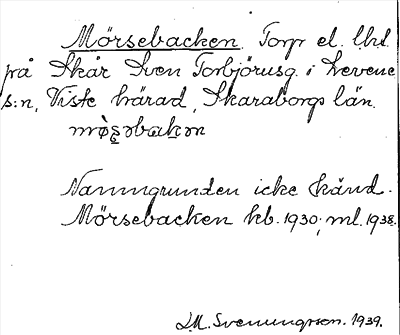 Mörsebacken. Torp el. lht.
på Skår Sven Torbjörnsg. i Levene
s:n, Viste härad, Skaraborgs län.
Namngrunden icke känd.
Mörsebacken hb. 1930; ml. 1938.
L.M. Svenungsson. 1939.